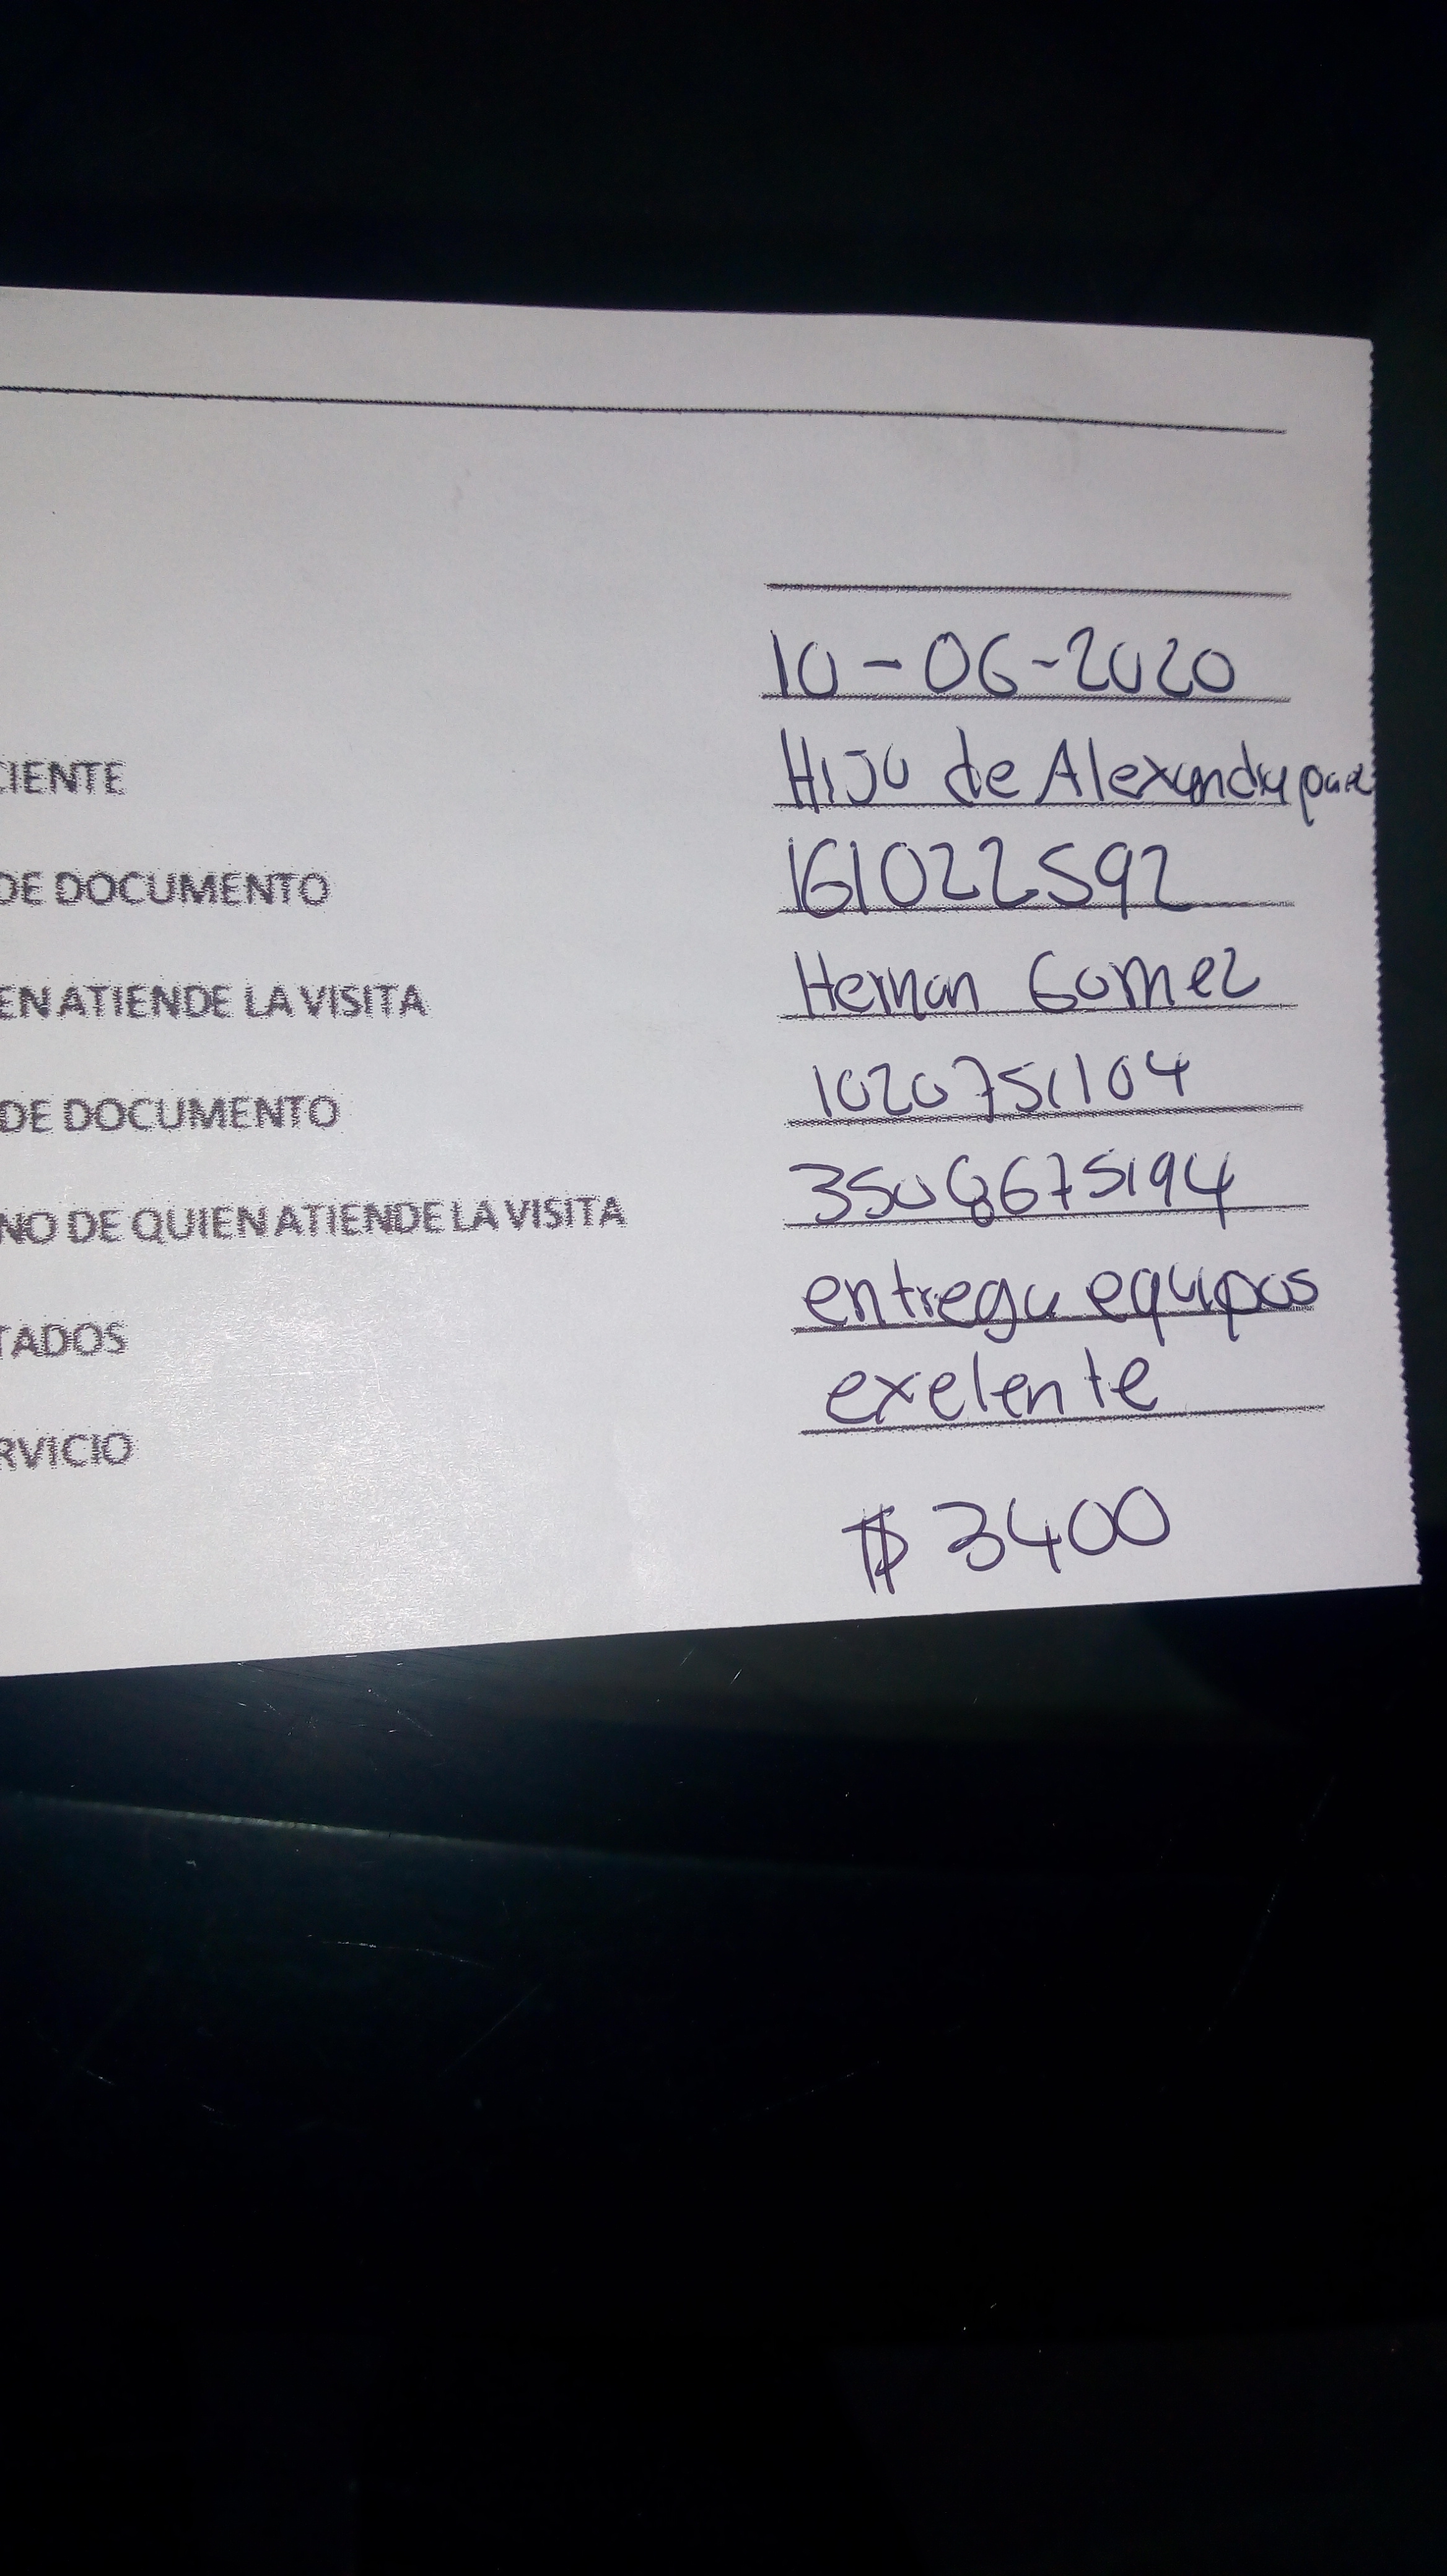 10-06-2020
CIENTE Hijo de Alexandra
DE DOCUMENTO 161022592
EN ATIENDE LA VISITA Hernan Gomez
DE DOCUMENTO 1020751104
NO DE QUIEN ATIENDE LA VISITA
TADOS entrega equipos
RVICIO exelente
$ 3400